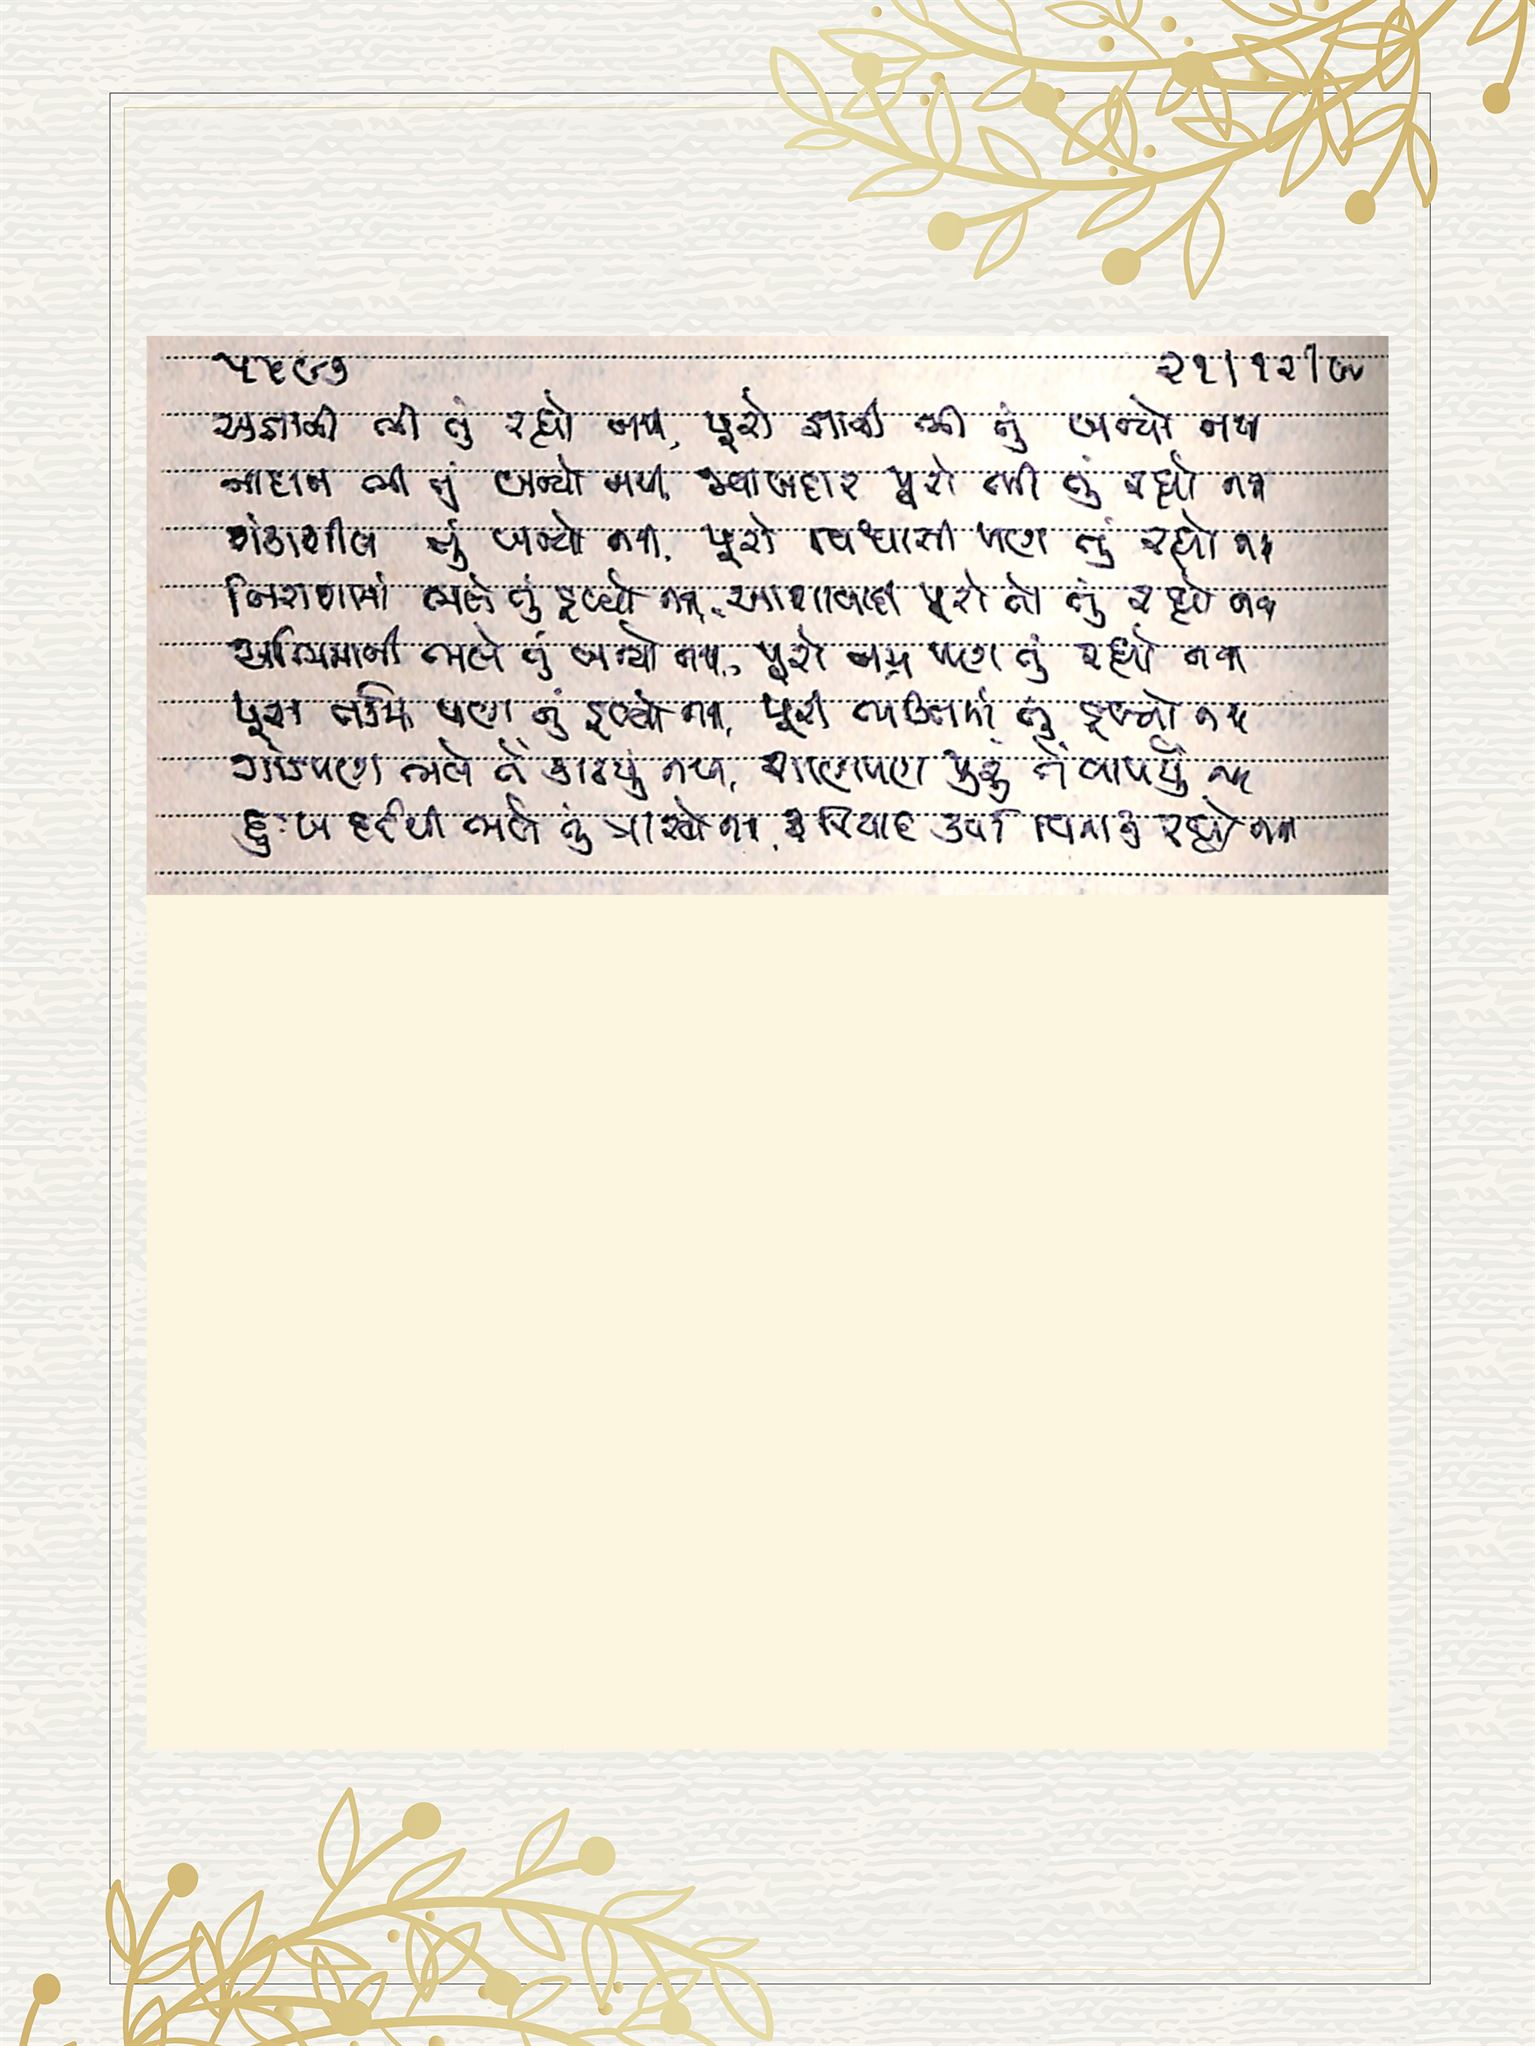 ૫૬૯૭ ૨૧/૧૨/૭૫
અજ્ઞાની ભી તું રહ્યો નથી, પૂરો જ્ઞાની ભી તું બન્યો નથી
નાદાન ભી તું બન્યો નથી, સમજદાર પૂરો ભી તું રહ્યો નથી
શંકાશીલ તું બન્યો નથી, પૂરો વિશ્વાસી પણ તું રહ્યો નથી
નિરાશામાં ભલે તું ડૂબ્યો નથી, આશાવાદી પૂરો તો તું રહ્યો નથી
અભિમાની ભલે તું બન્યો નથી, પૂરો નમ્ર પણ તું રહ્યો નથી
પૂરા ભક્તિ પણ તું ડૂબ્યો નથી, પૂરી તું ડૂબ્યો નથી
ગાંડપણ ભલે તેં કાઢયું નથી, શાણપણ પૂરું તેં વાપર્યું નથી
દુઃખ દર્દથી ભલે તું નથી, ફરિયાદ કર્યા વિના તું રહ્યો નથી